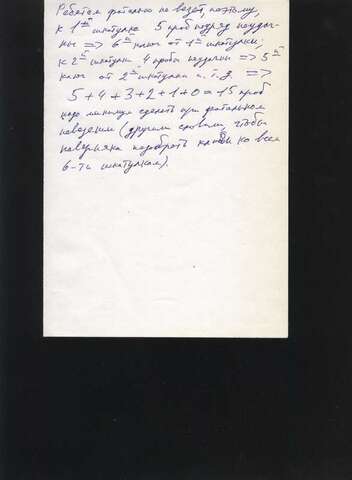 Ребятам фатально не везёт, поэтому,
к 1ой шкатулке 5 проб подряд неудач-
ны => 6й ключ от 1ой шкатулки,
к 2ой шкатулке 4 пробы неудачны => 5й
ключ от 2ой шкатулки и т.д. =>
5+4+3+2+1+0=15 проб
надо минимум сделать при фатальном
невезении (другими словами, чтобы
наверняка подобрать ключи ко всем
6-ти шкатулкам).